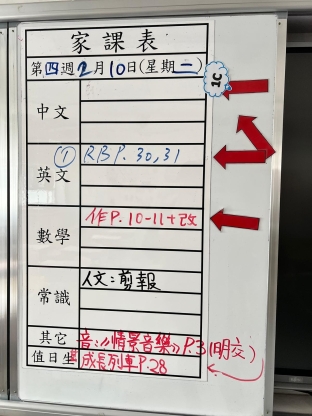 家課表
第四週2月10日(星期二)
1C
中文
英文
① RB P. 30,31
數學
作P. 10-11+改
常識
人文：剪報
其它
音:《情景音樂》P.3(明交)
值日生
成長列車P.28